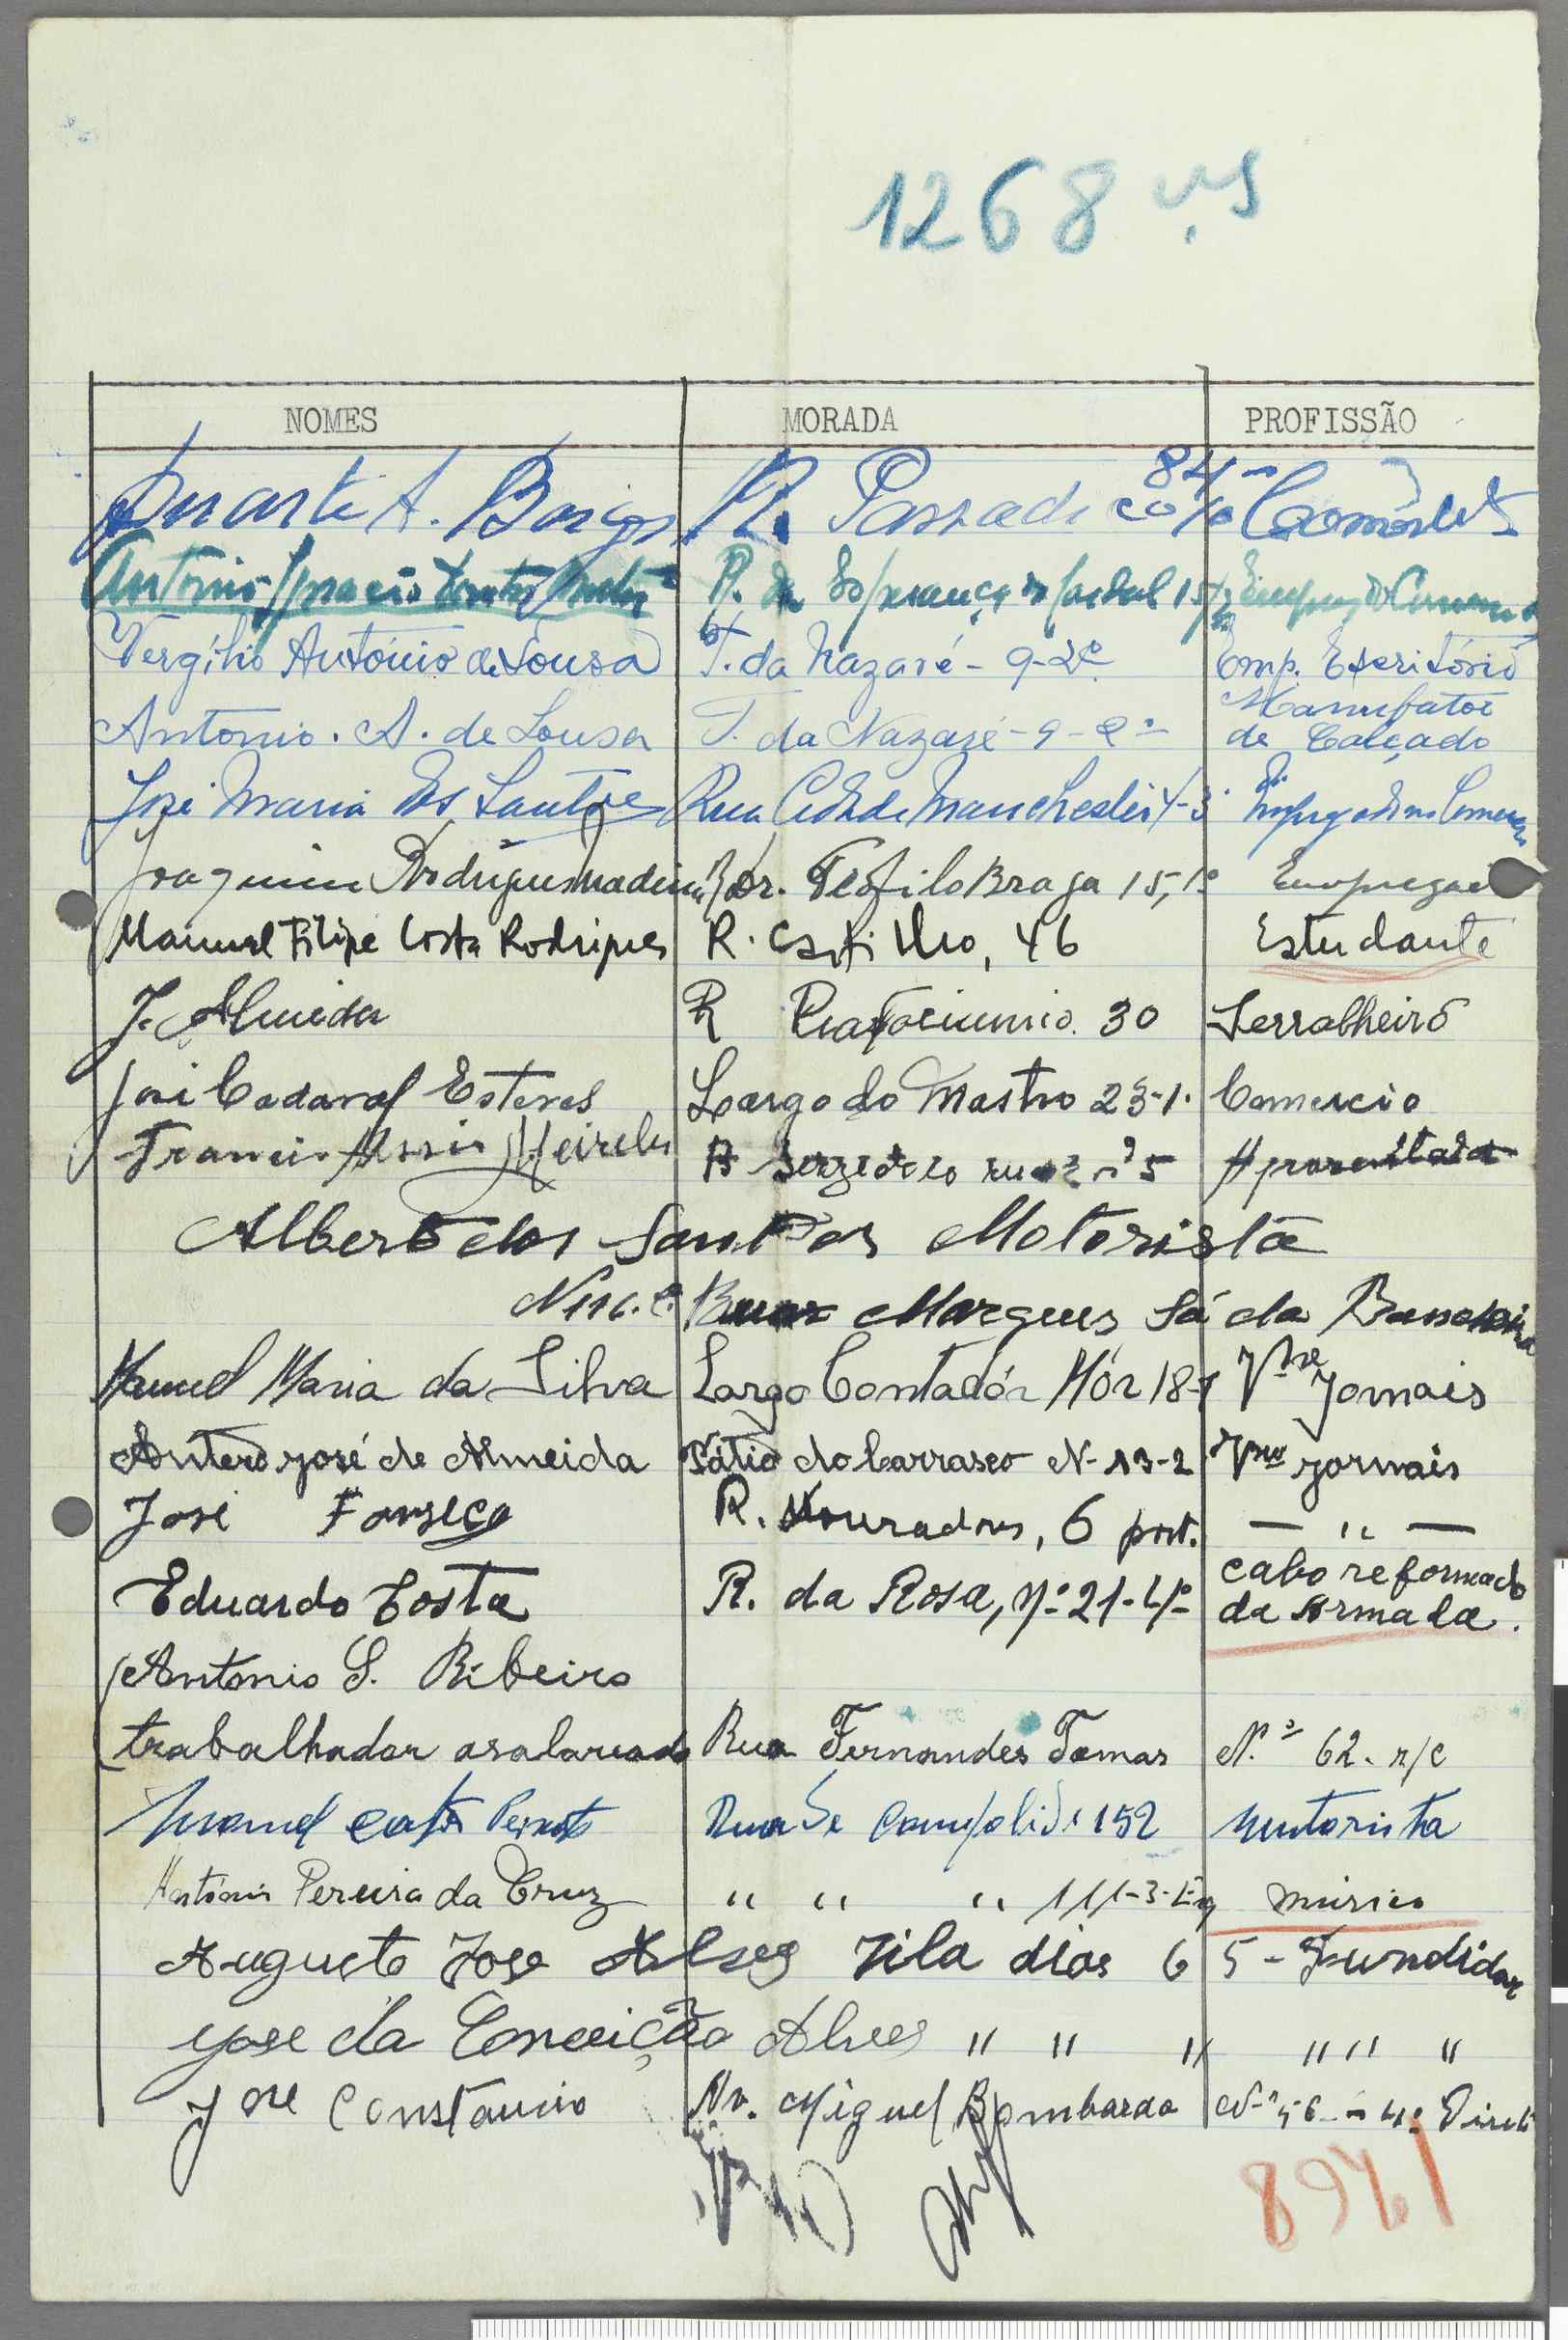 1268 vs
NOMES MORADA PROFISSÃO
Duarte A. Borges R. Passadiço 84
Antonio R. da Esperança do Cardal 15
Vergílio António de Sousa T. da Nazaré - 9-2º Emp. Escritório
Antonio. A. de Sousa T. da Nazaré - 9 - 2º Manufator
de Calçado
José Maria dos Santos Rua Cidade Manchester 4-3º Empregado no Comercio
Joaquim Rodrigues R. Dr. Teófilo Braga 15, 1º Empregado
Manuel Filipe Costa Rodrigues R. Castilho, 46 Estudante
J. Almeida R 30 Serralheiro
José Cadaval Esteves Largo do Mastro 23-1. Comercio
Francisco Assis Meireles nº 5
Alberto dos Santos Motorista
Marques Sá da Bandeira
Manuel Maria da Silva Largo Contadór Mór 18-1 Vdor Jornais
Antero José de Almeida Pátio do Carrasco N-13-2 Vdor Jornais
José Fonseca R. Douradores, 6 port. — " —
Eduardo Costa R. da Rosa, nº 21-4º cabo reformado
da Armada.
Antonio S. Ribeiro
trabalhador asalareado Rua Fernandes Tomas N.º 62. r/c
Manuel Rua de Campolide 152 Motorista
António Pereira da Cruz " " " 111-3-Eq musico
Augusto Jose Alves Vila dias 65 - Fundidor
Jose da Conceição Alves " " " " " "
José Constancio Av. Miguel Bombarda Nº 56 - 4º Direito
1268